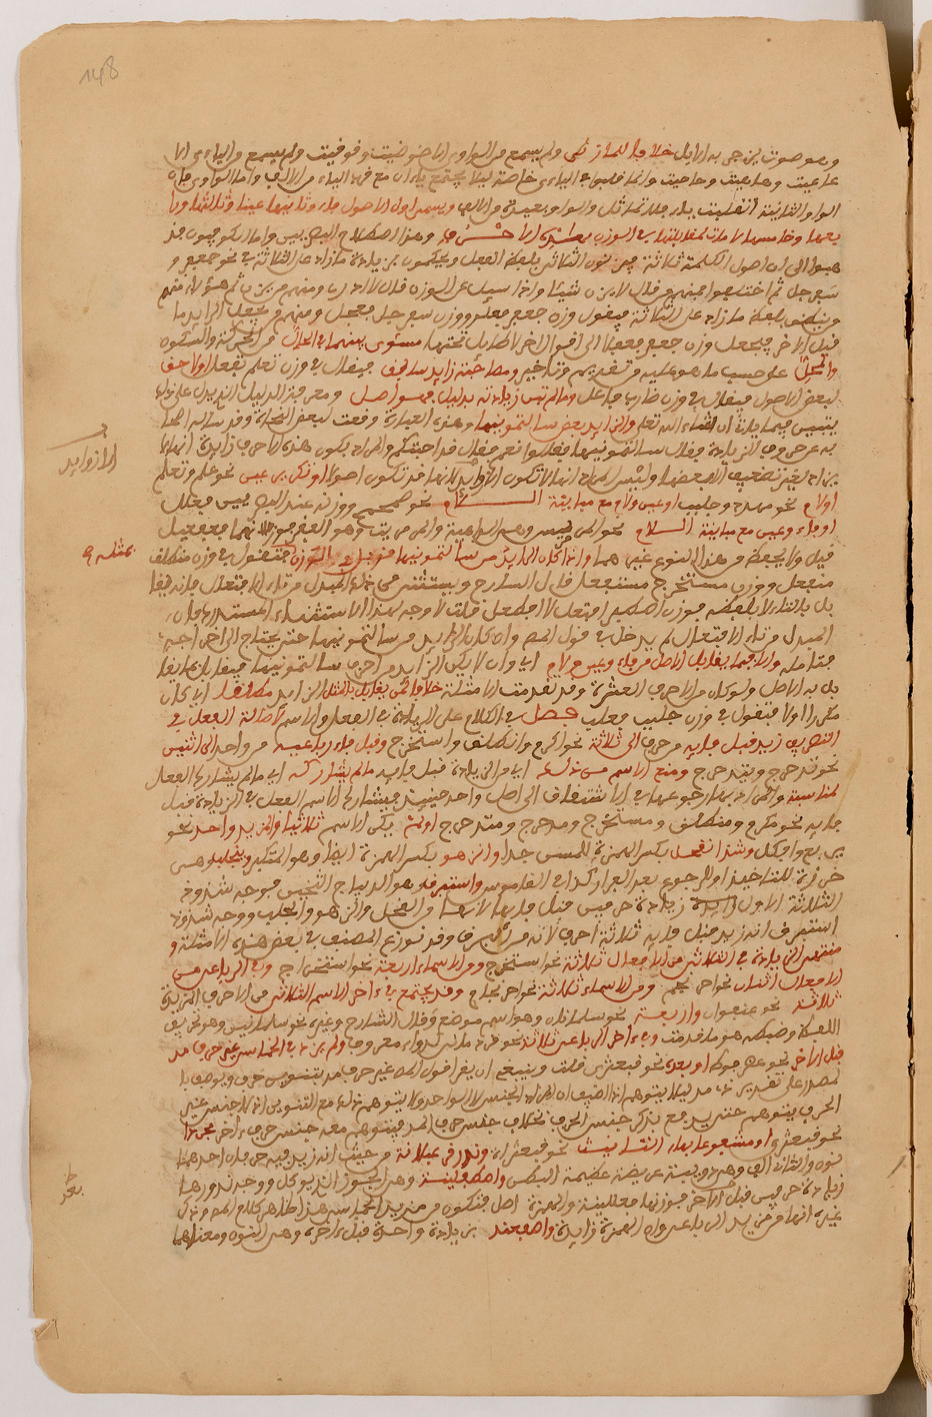 148
وهو صوت يزجى به الابل خلافا للمازنى ولم يسمع من الواوى الا ضوضيت وقوقيت ولم يسمع من الياءى الا
عاعيت وهاهيت وحاحيت وانما قلبوا فى الياءى خاصة ليلا يجتمع ياءان مع قرب الياء من الالف واما الواوى فان
الواو الثانية انقلبت ياء فلا تماثل والواو بعيدة من الالف ويسمى اول الاصول فاء وثانيها عينا وثالثها ورا
بعها وخامسها لامات لمقابلتها فى الوزن بهذه الاحرف وهذا اصطلاح البصريين واما الكوفيون فذ
هبوا الى ان اصول الكلمة ثلاثة فيزنون الثلاثى بلفظ الفعل ويحكمون بزيادة ما زاد على الثلاثة فى نحو جعفر و
سفرجل ثم اختلفوا فمنهم من قال لا يزن شيئا واذا سئل عن الوزن قال لا ادرى ومنهم من يزن ثم هؤلاء منهم
من ينطق بلفظ ما زاد على الثلاثة فيقول وزن جعفر فعلر ووزن سفرجل فعلجل ومنهم من يجعل الزايد ما
قبل الاخر فيجعل وزن جعفر فعفل الى اقوال اخر لا طايل تحتها مسوى بينهما فى الحال من الحركة والسكون
والمحل على حسب ما هو عليه من تقديم وتاخير ومصاحبة زايد سابق فيقال فى وزن تعلم تفعل او لاحق
لبعض الاصول فيقال فى وزن ضارب فاعل وما لم تبن زيادته بدليل فهو اصل ومعرفة الدليل الذى يدل على زيادة
يتبين فيما ياتى ان شاء الله تعالى والزايد بعض سالتمونيها وهذه العبارة وقعت لبعض النحاة وقد ساله اصحا
به عن حروف الزيادة فقال سالتمونيها فقالوا نعم فقال قد اجبتكم والمراد بكون هذه الاحرف زايدة انها لا
يزاد لغير تضعيف الا بعضها وليس المراد انها لا تكون الا زوايد لانها قد تكون اصولا او تكرير عين نحو علم وتعلم
اولام نحو مهدد وجلبب او عين ولام مع مباينة الـــــــلام نحو صمحمح ووزنه عند البصريين فعلعل
او فاء وعين مع مباينة اللام نحو المرمريس وهى الداهية والمرمريت وهو القفر ووزنهما فعفعيل
قيل ولا يحفظ من هذا النوع غيرهما واذا كان الزايد من سالتمونيها قوبل فى الوزن بمثله فتقول فى وزن منطلق
منفعل ووزن مستخرج مستفعل قال الشارح ويستثنى من ذلك المبدل من تاء الافتعال فانه يقا
بل بالتاء لا بلفظه فوزن اصطبر افتعل لا افطعل قلت لا وجه لهذا الاستثناء المستدرك فان
المبدل من تاء الافتعال لم يدخل فى قول المصنف وان كان الزايد من سالتمونيها حتى يحتاج الى اخراجه
فتامله والا فبما يقابل الاصل من فاء وعين ولام اى وان لا يكن الزايد من احرف سالتمونيها فيقابل بما يقا
بل به الاصل ولو كان من الاحرف العشرة وقد تقدمت الامثلة خلافا لمن يقابل بالمثل الزايد مطلقا اى كان
مكررا اولا فتقول فى وزن جلبب فعلب فصل فى الكلام على الزيادة فى الفعل والاسم لاصالة الفعل فى
التصريف زيد قبل فايه من حرف الى ثلاثة نحو اكرم وانطلق واستخرج وقبل فاء رباعيه من واحد الى اثنين
نحو تدحرج ويتدحرج ومنع الاسم من ذلك اى من الزيادة قبل فايه ما لم يشاركه اى ما لم يشارك الفعل
لمناسبة والمراد بها رجوعهما فى الاشتقاق الى اصل واحد حينئذ فيشارك الاسم الفعل فى الزيادة قبل
فايه نحو مكرم ومنطلق ومستخرج ومدحرج ومتدحرج او لم يكن الاسم ثلاثيا والمزيد واحد نحو
يربوع وافكل وشذ انقحل بكسر الهمزة للمسن جدا وانزهو بكسر الهمزة ايضا وهو المتكبر وينجلب وهى
خرزة للتاخيذ او للرجوع بعد الفرار كذا فى القاموس واستبرق هو الديباج الثخين فوجه شذوذ
الثلاثة الاول زيادة حرفين قبل فايها لانها من القحل والزهو والجلب ووجه شذوذ
استبرق انه زيد قبل فايه ثلاثة احرف لانه من البرق وقد نوزع المصنف فى بعض هذه الامثلة و
منتهى الزيادة فى الثلاثى من الافعال ثلاثة نحو استخرج ومن الاسماء اربعة نحو استخراج وفى الرباعى من
الافعال اثنان نحو احرنجم ومن الاسماء ثلاثة نحو احرنجام وقد يجتمع فى اخر الاسم الثلاثى من الاحرف المزيدة
ثلاثة نحو عنفوان واربعة نحو سلمانان وهو اسم موضع وقال الشارح وغيره نحو سلمانين وهو تحريف
اللفظ وضبطه هو ما قدمت وفى اخر الرباعى ثلاثة نحو قردمانى لدواء معروف ولم يزد فى الخماسى غير حرف مد
قبل الاخر نحو عضرفوط او بعده نحو قبعثرى قلت وينبغى ان يقرا قول المصنف غير حرف مد بتنوين حرف ويوصف با
لمصدر على تقدير ذى مد ليلا يتوهم اذا اضيف ان المراد الجنس لا الواحد ولا يتوهم ذلك مع التنوين اذ لا جنس غير
الحرف يتوهم حتى يدفع بذكر جنس الحرف بخلاف جنس حرف المد فيتوهم معه جنس حرف اخر مجردا
نحو قبعثرى او مشفوعا بهاء التانيث نحو قبعثراة وندر قرعبلانة من حيث انه زيد فيه حرفان احدهما
نون والثانى الف وهى دويبة عريضة عظيمة البطن واصطفلينة وهى الجزر الذى يوكل ووجه ندورها
زيادة حرفين قبل الاخر فوزنها فعللينة والهمزة اصل فتكون من مزيد الخماسى هذا ظاهر كلام المصنف وذكر
غيره انها من مزيد الرباعى وان الهمزة زايدة واصفعند بزيادة واحدة قبل اخره وهى النون ومعناها
الازوايد
بمثله